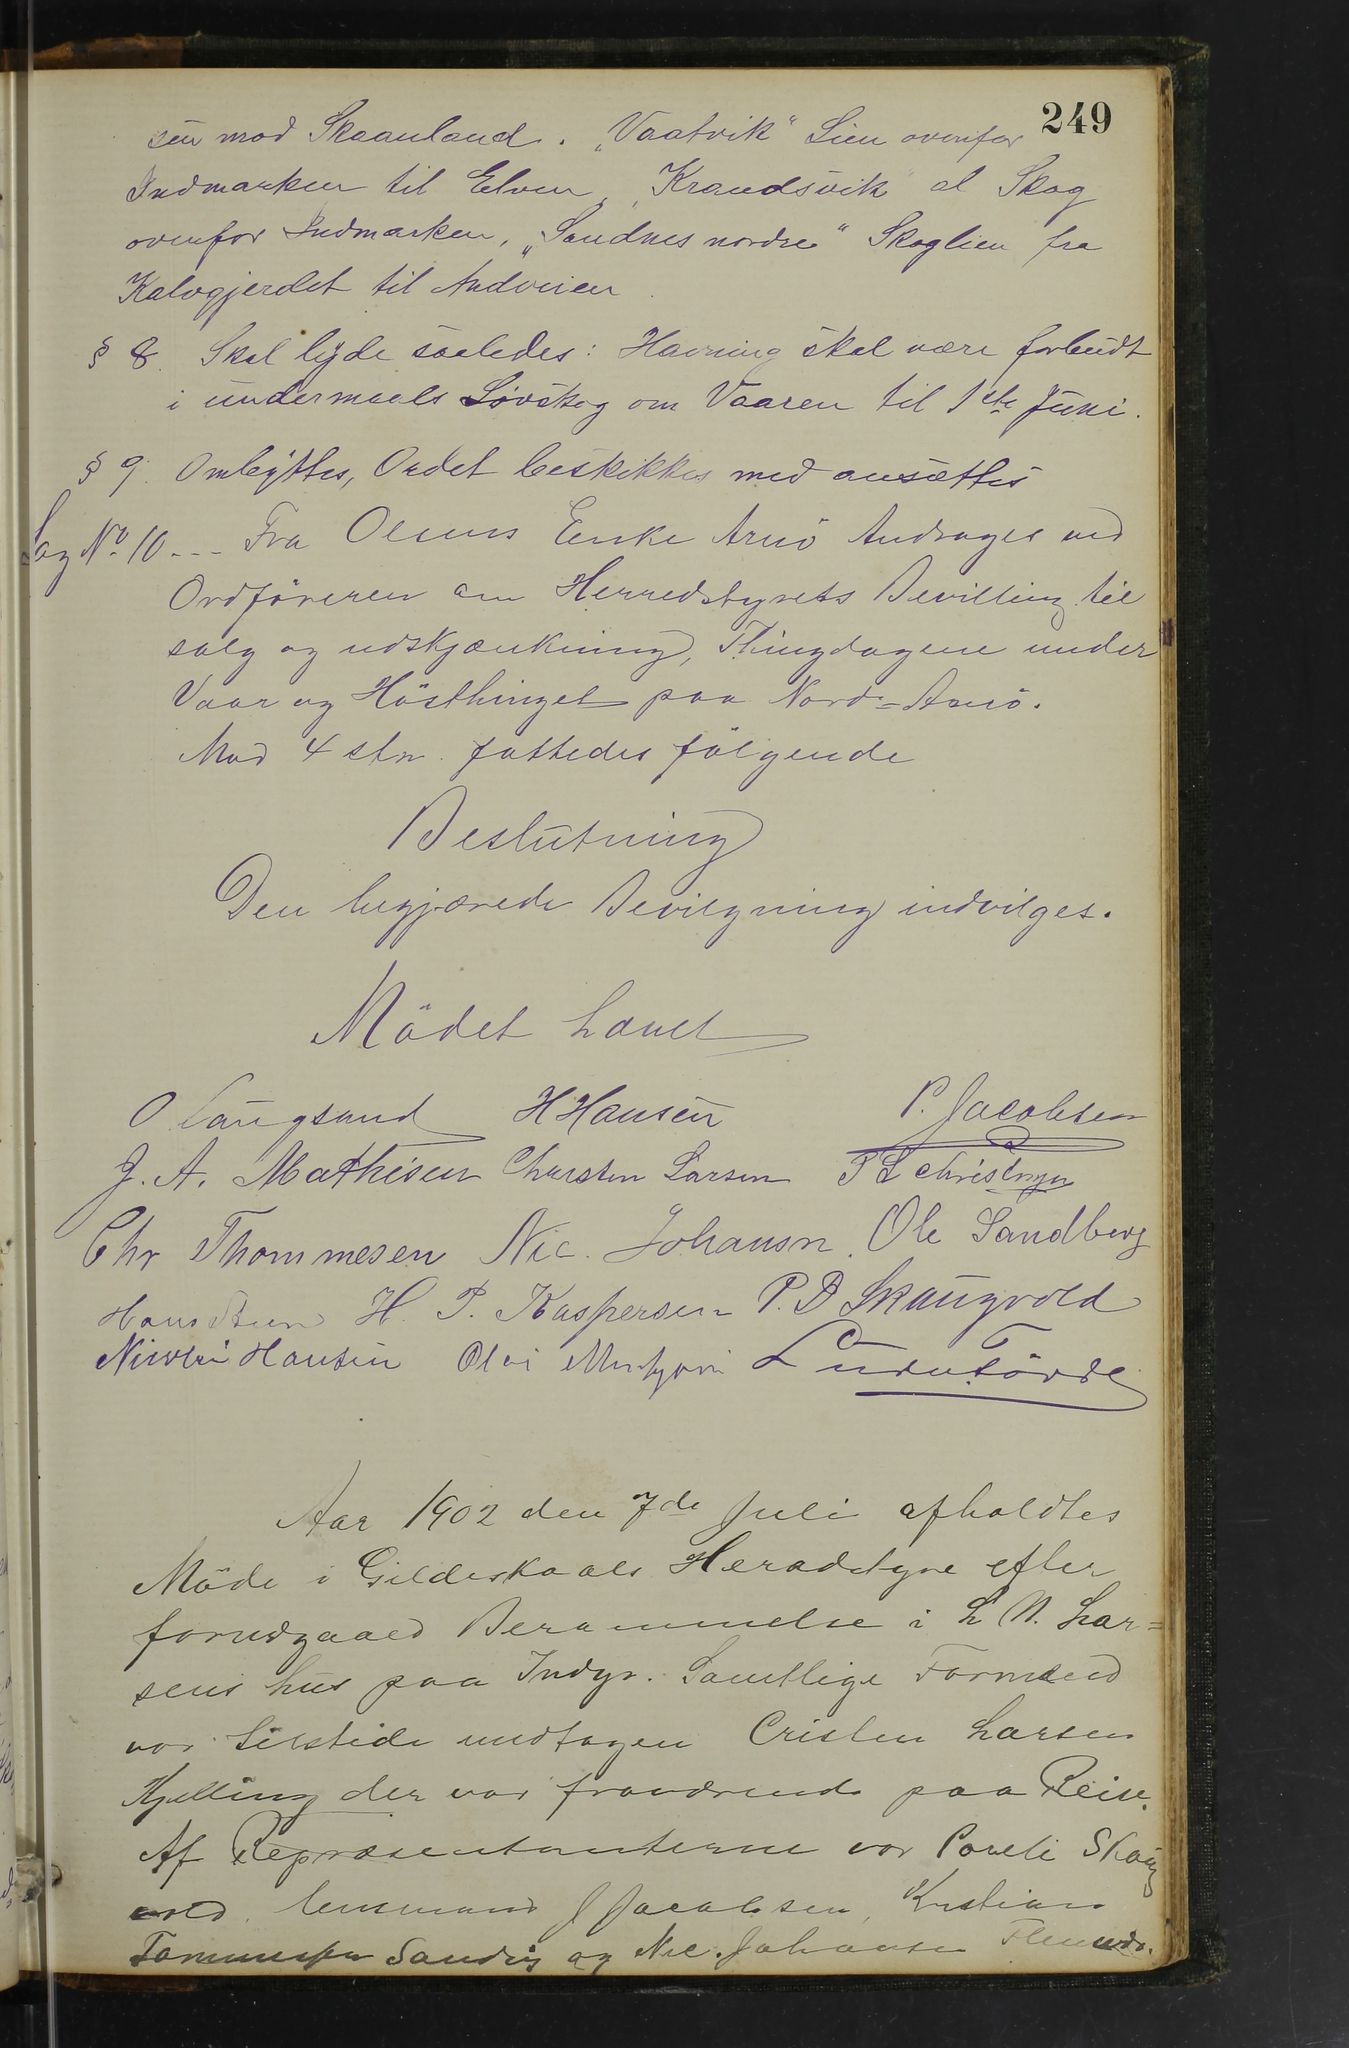 249
sen mod Skaanland. „Vaatvik“ Lien ovenfor
Indmarken til Elven, „Krandsvik“ al Skog
ovenfor Indmarken, „Sandnes nordre“ Skoglien fra
Kalvgjerdet til Andveien
§ 8. Skal lyde saaledes: Havning skal være forbudt
i undermaals Løvskog om Vaaren til 1ste Juni.
§ 9. Ombyttes, Ordet beskikkes med ansættes
Sag No 10 --- Fra Oluns Enke Arnö Andrages ved
Ordföreren om Herredstyrets Bevilling til
salg og udskjænkning, Thingdagene under
Vaar og Hösthinget paa Nord-Arnö.
Mod 4 str. fattedes fölgende
Beslutning
Den begjærede Bevilgning indvilges.
Mödet hævet
O Langsand H Hansen P. Jacobsen
J. A. Mathisen Christen Larsen P L Christensen
Chr Thommesen Nic. Johansn. Ole Sandberg
Hans H. P. Kaspersen P. D Skaugvold
Nicolai Hansen Olai
Aar 1902 den 7de Juli afholdtes
Möde i Gildeskaals Heradstyre efter
forudgaaed Berammelse i L N. Lar=
sens hus paa Indyr. Samtlige Formænd
var tilstede undtagen Cristen Larsen
Kjelling der var fraværende paa Reise.
Af Repræsentanterne var Poveli Skaug
vold. lensmand J Jacobsen, Kristian
Tommesen Sandvig og Nic. Johansen